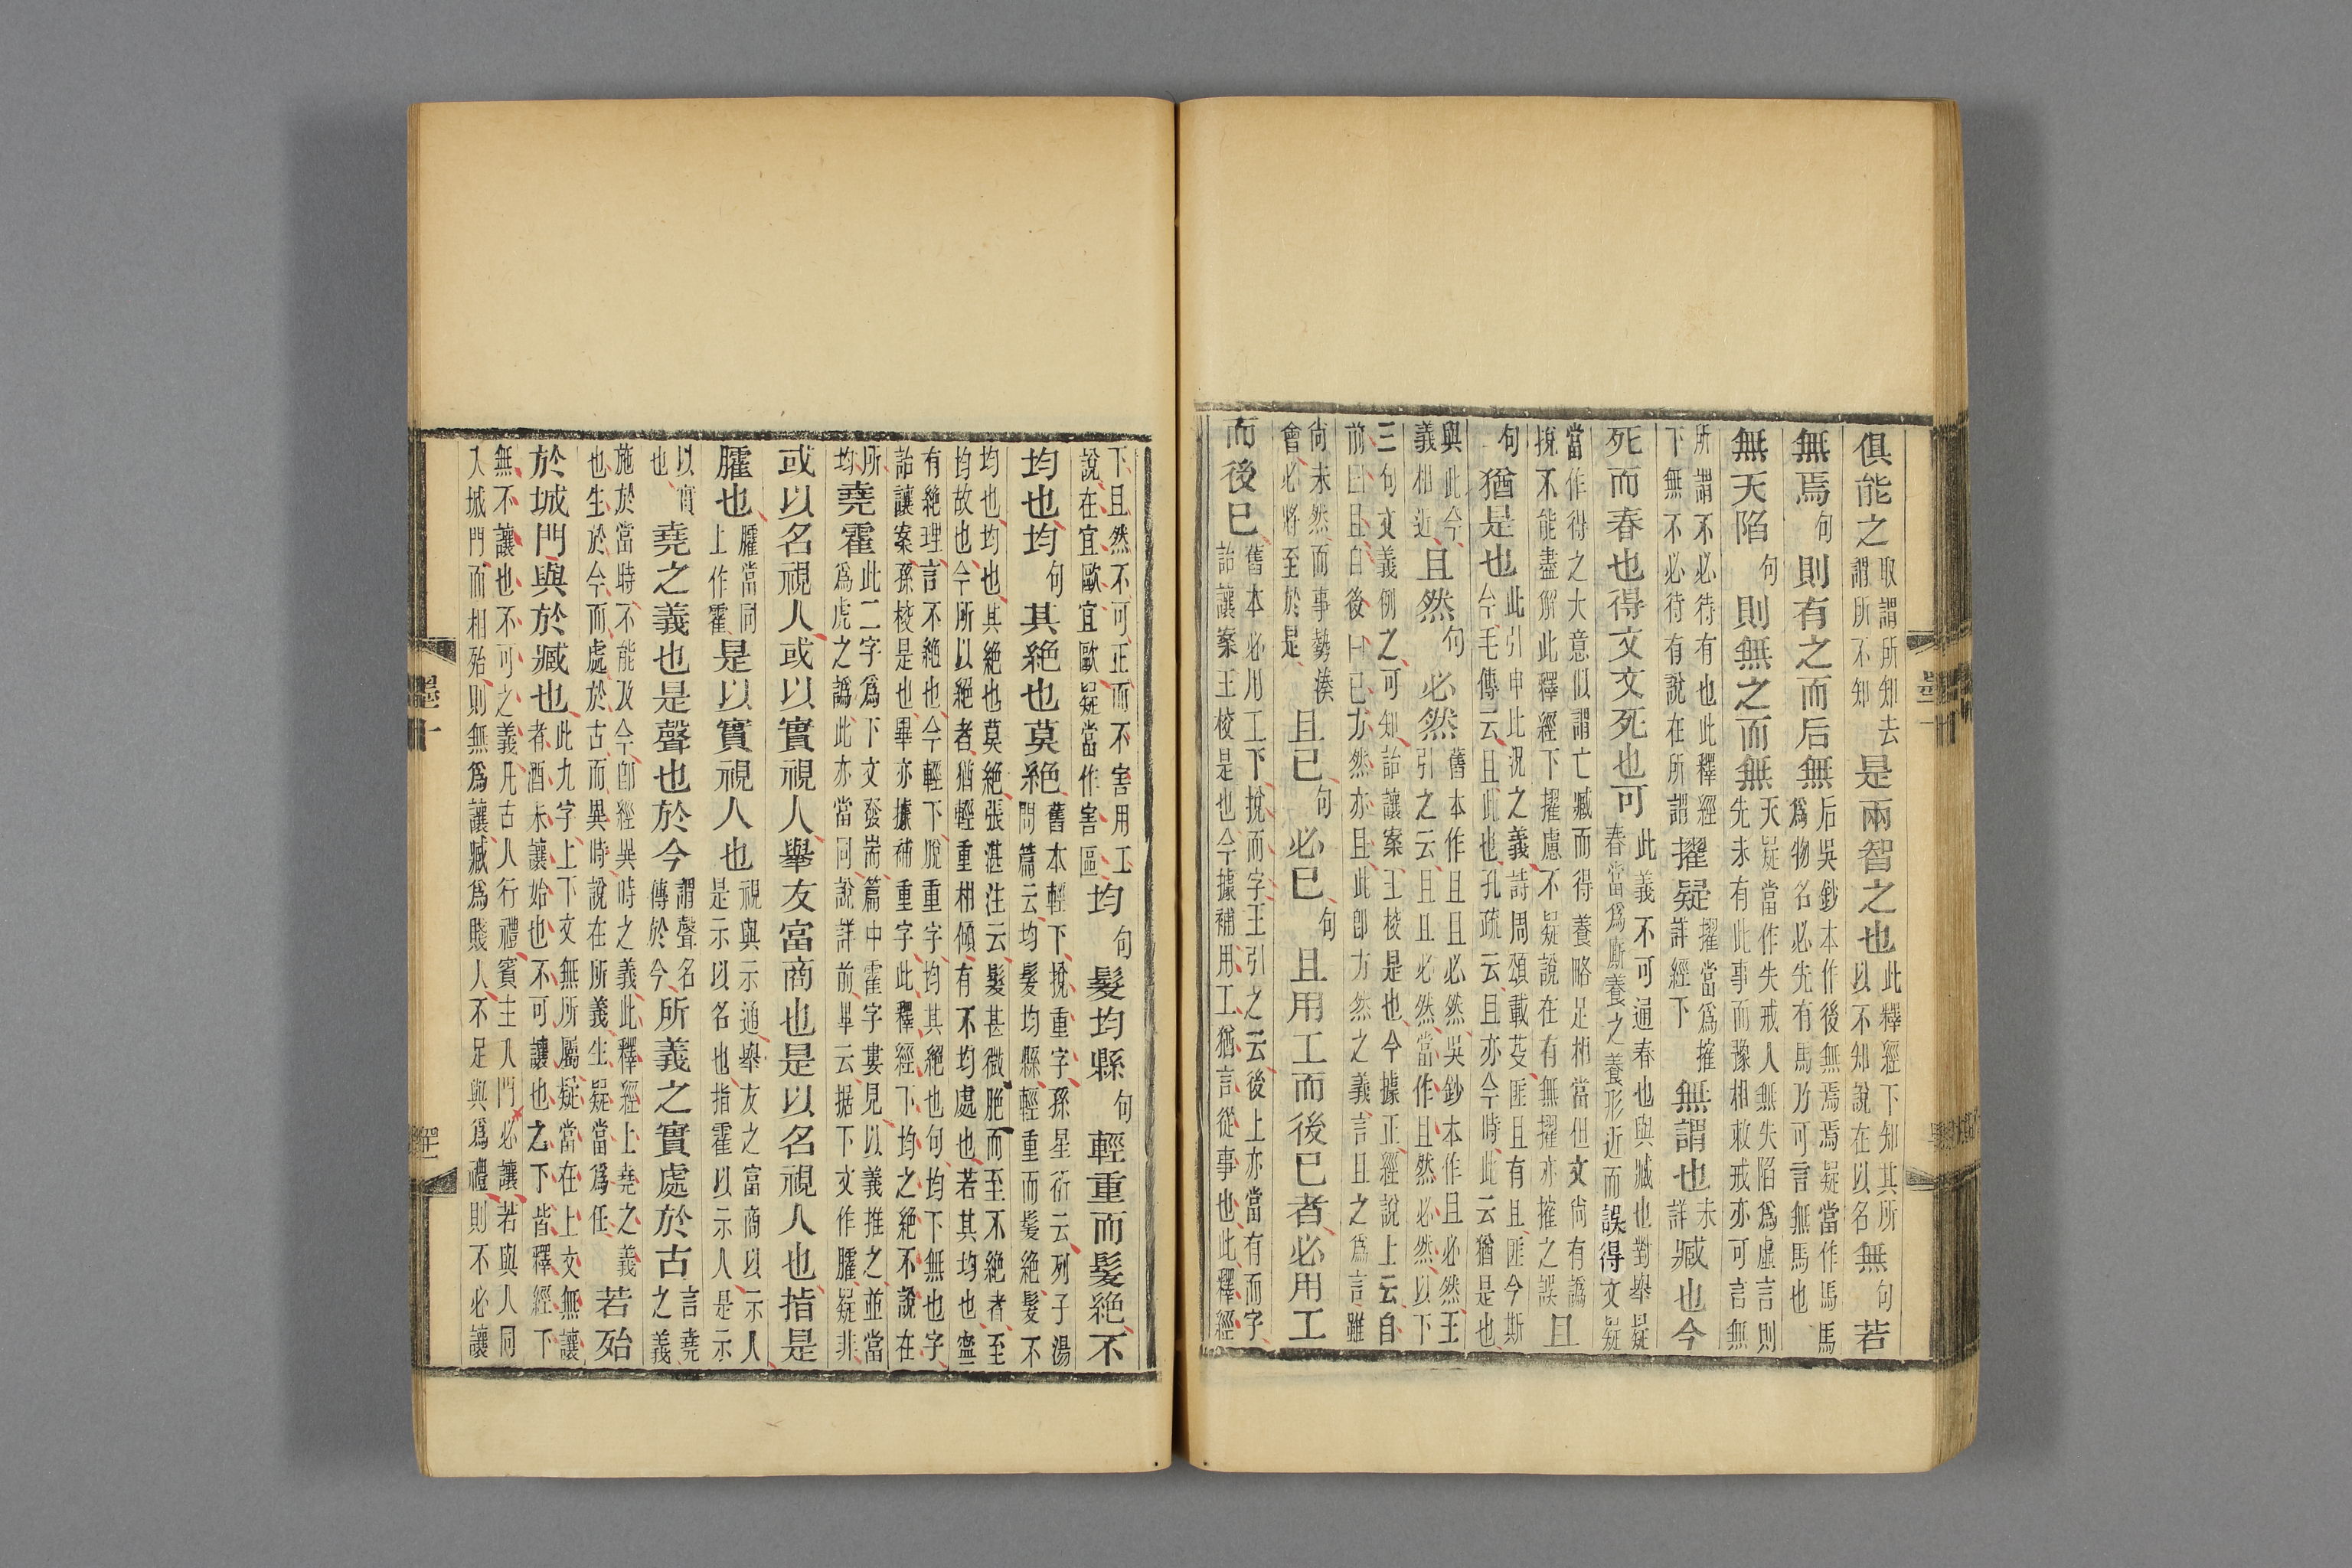 俱能之取謂所知去謂所不知是兩智之也此釋經下知其所以不知說在以名無句若
無焉句則有之而后無后吳鈔本作後無焉焉疑當作馬馬爲物名必先有馬乃可言無馬也
無天陷句則無之而無天疑當作失戒人無失陷爲虛言則先未有此事而豫相敕戒亦可言無
所謂不必待有也此釋經下無不必待有說在所謂擢疑擢當爲搉詳經下無謂也未詳臧也今
死而春也得文文死也可此義不可通春也與臧也對舉疑春當爲廝養之養形近而誤得文疑
當作得之大意似謂亡臧而得養略足相當但文尚有譌挩不能盡解此釋經下擢慮不疑說在有無擢亦搉之誤且
句猶是也此引申此況之義詩周頌載芟匪且有且匪今斯今毛傳云且此也孔疏云且亦今時此云猶是也
與此今義相近且然句必然舊本作且且必然吳鈔本作且必然王引之云且且必然當作且然必然以下
三句文義例之可知詒讓案王校是也今據正經說上云自前曰且自後曰已方然亦且此卽方然之義言且之爲言雖
尚未然而事勢湊會必將至於是且已句必已句且用工而後已者必用工
而後已舊本必用工下挩而字王引之云後上亦當有而字詒讓案王校是也今據補用工猶言從事也此釋經
下且然不可正而不害用工說在宜歐宜歐疑當作害區均句髮均縣句輕重而髮絕不
均也均句其絕也莫絕舊本輕下挩重字孫星衍云列子湯問篇云均髮均縣輕重而髮絕髮不
均也均也其絕也莫絕張湛注云髮甚微脆而至不絕者至均故也今所以絕者猶輕重相傾有不均處也若其均也寧
有絕理言不絕也今輕下脫重字均其絕也句均下無也字詒讓案孫校是也畢亦據補重字此釋經下均之絕不說在
所均堯霍此二字爲下文發耑篇中霍字婁見以義推之並當爲虎之譌此亦當同說詳前畢云据下文作臛疑非
或以名視人或以實視人舉友富商也是以名視人也指是
臛也臛當同上作霍是以實視人也視與示通舉友之富商以示人是示以名也指霍以示人是示
以實也堯之義也是聲也於今謂聲名傳於今所義之實處於古言堯之義
施於當時不能及今卽經異時之義此釋經上堯之義也生於今而處於古而異時說在所義生疑當爲任若殆
於城門與於臧也此九字上下文無所屬疑當在上文無讓者酒未讓始也不可讓也之下皆釋經下
無不讓也不可之義凡古人行禮賓主入門必讓若與人同入城門而相殆則無爲讓臧爲賤人不足與爲禮則不必讓
墨十